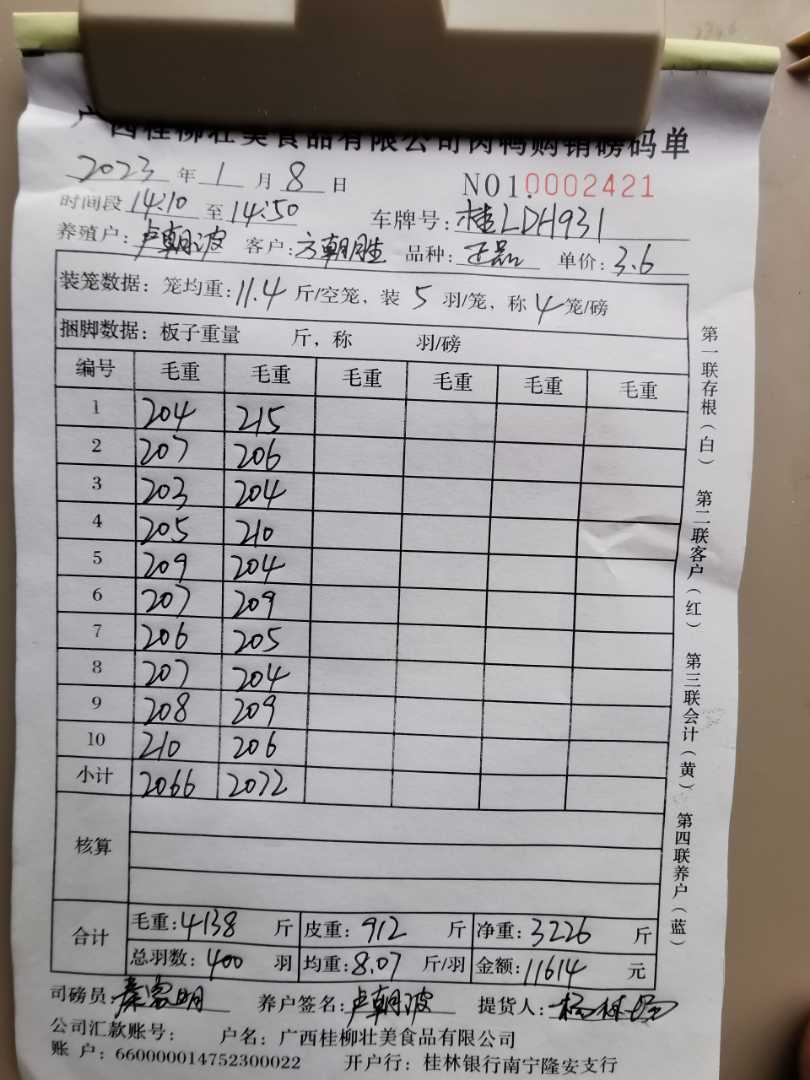 广西桂柳壮美食品有限公司肉鸭购销磅码单
2023 年 1 月 8 日 NO1.0002421
时间段 14:10 至 14:50 车牌号: 桂LDH931
养殖户: 卢朝波 客户: 方朝胜 品种: 正品 单价: 3.6
装笼数据: 笼均重: 11.4 斤/空笼, 装 5 羽/笼, 称 4 笼/磅
捆脚数据: 板子重量 斤, 称 羽/磅
编号 毛重 毛重 毛重 毛重 毛重 毛重
1 204 215
2 207 206
3 203 204
4 205 210
5 209 204
6 207 209
7 206 205
8 207 204
9 208 209
10 210 206
小计 2066 2072
核算
合计 毛重: 4138 斤 皮重: 912 斤 净重: 3226 斤
总羽数: 400 羽 均重: 8.07 斤/羽 金额: 11614 元
司磅员: 养户签名: 卢朝波 提货人:
公司汇款账号: 户名: 广西桂柳壮美食品有限公司
账 户: 660000014752300022 开户行: 桂林银行南宁隆安支行
第一联存根(白) 第二联客户(红) 第三联会计(黄) 第四联养户(蓝)